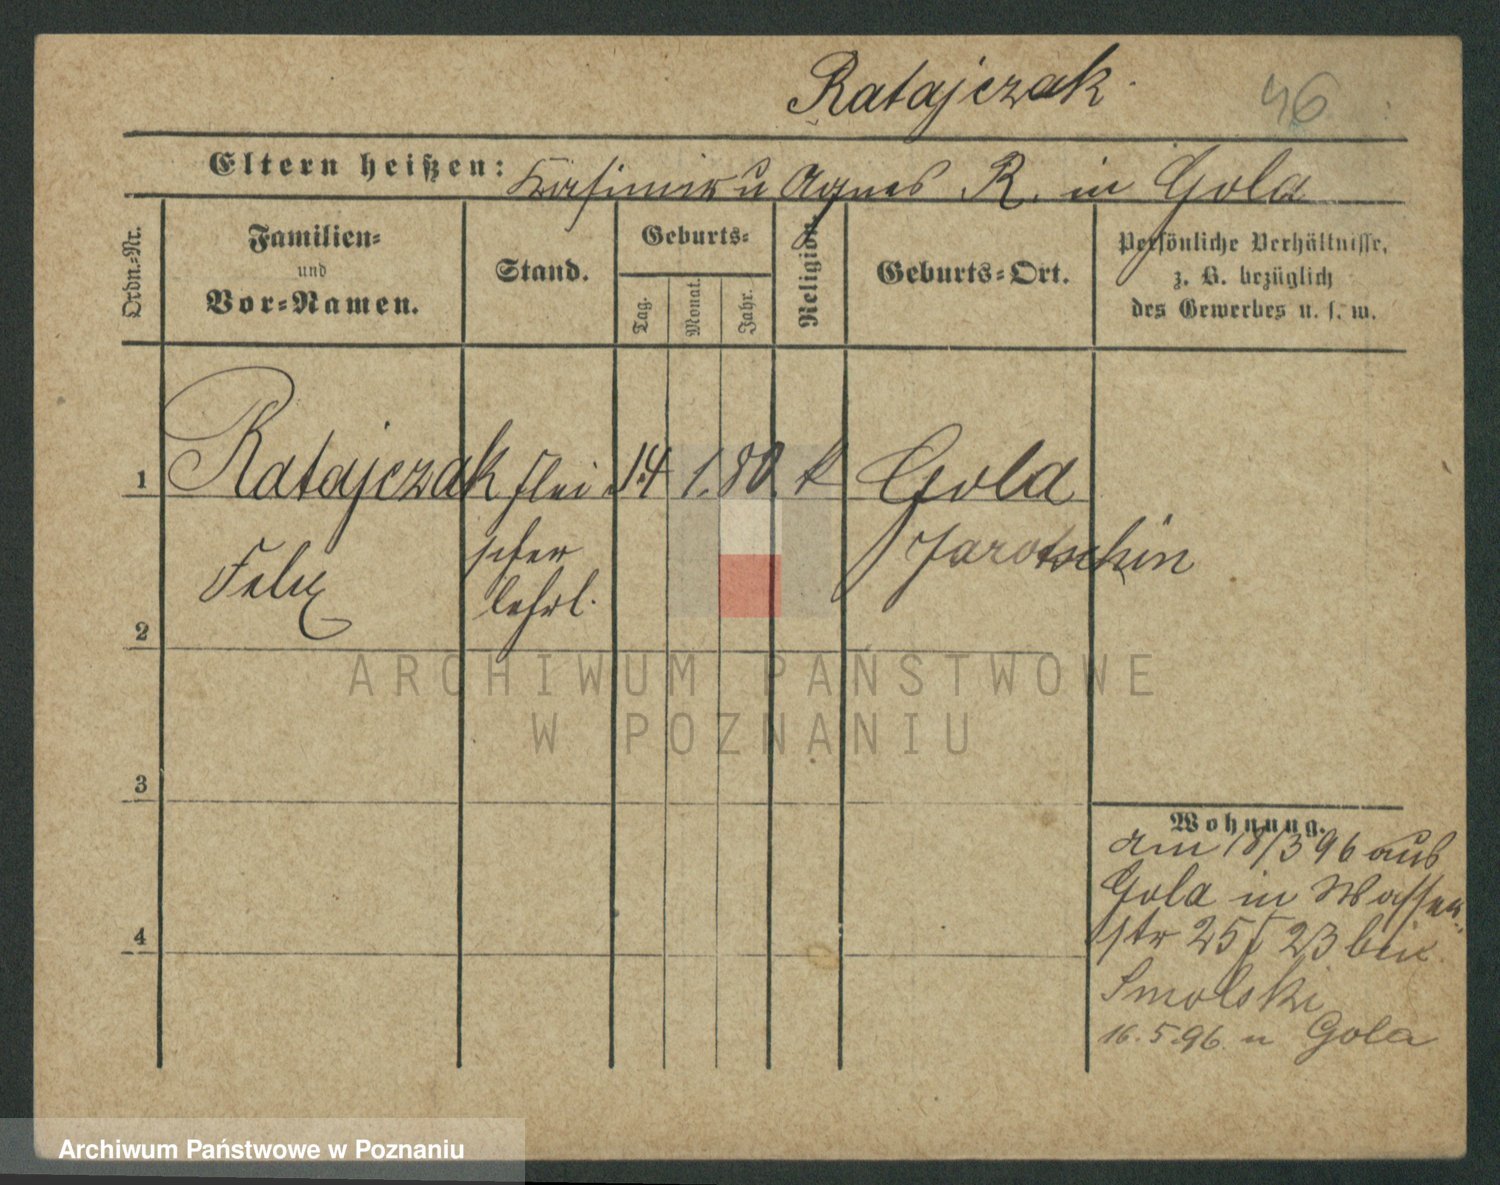 Ratajczak
46
Eltern heißen: Kasimir u Agnes R. in Gola
Ordn.-Nr.
Familien-
und
Vor-Namen.
Stand.
Geburts-
Tag.
Monat.
Jahr.
Religion.
Geburts-Ort.
Persönliche Verhältnisse,
z. B. bezüglich
des Gewerbes u. s. w.
1 Ratajczak Flei 14 1. 80 k Gola
scher Jarotschin
Felix lehrl.
2
ARCHIWUM PAŃSTWOWE
W POZNANIU
3
Wohnung.
am 18/3 96 aus
Gola in Wasser
4
str 25 23 bei
Smolski
16.5.96. n Gola
Archiwum Państwowe w Poznaniu